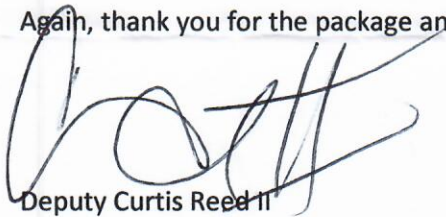 Again, thank you for the package an
Deputy Curtis Reed II